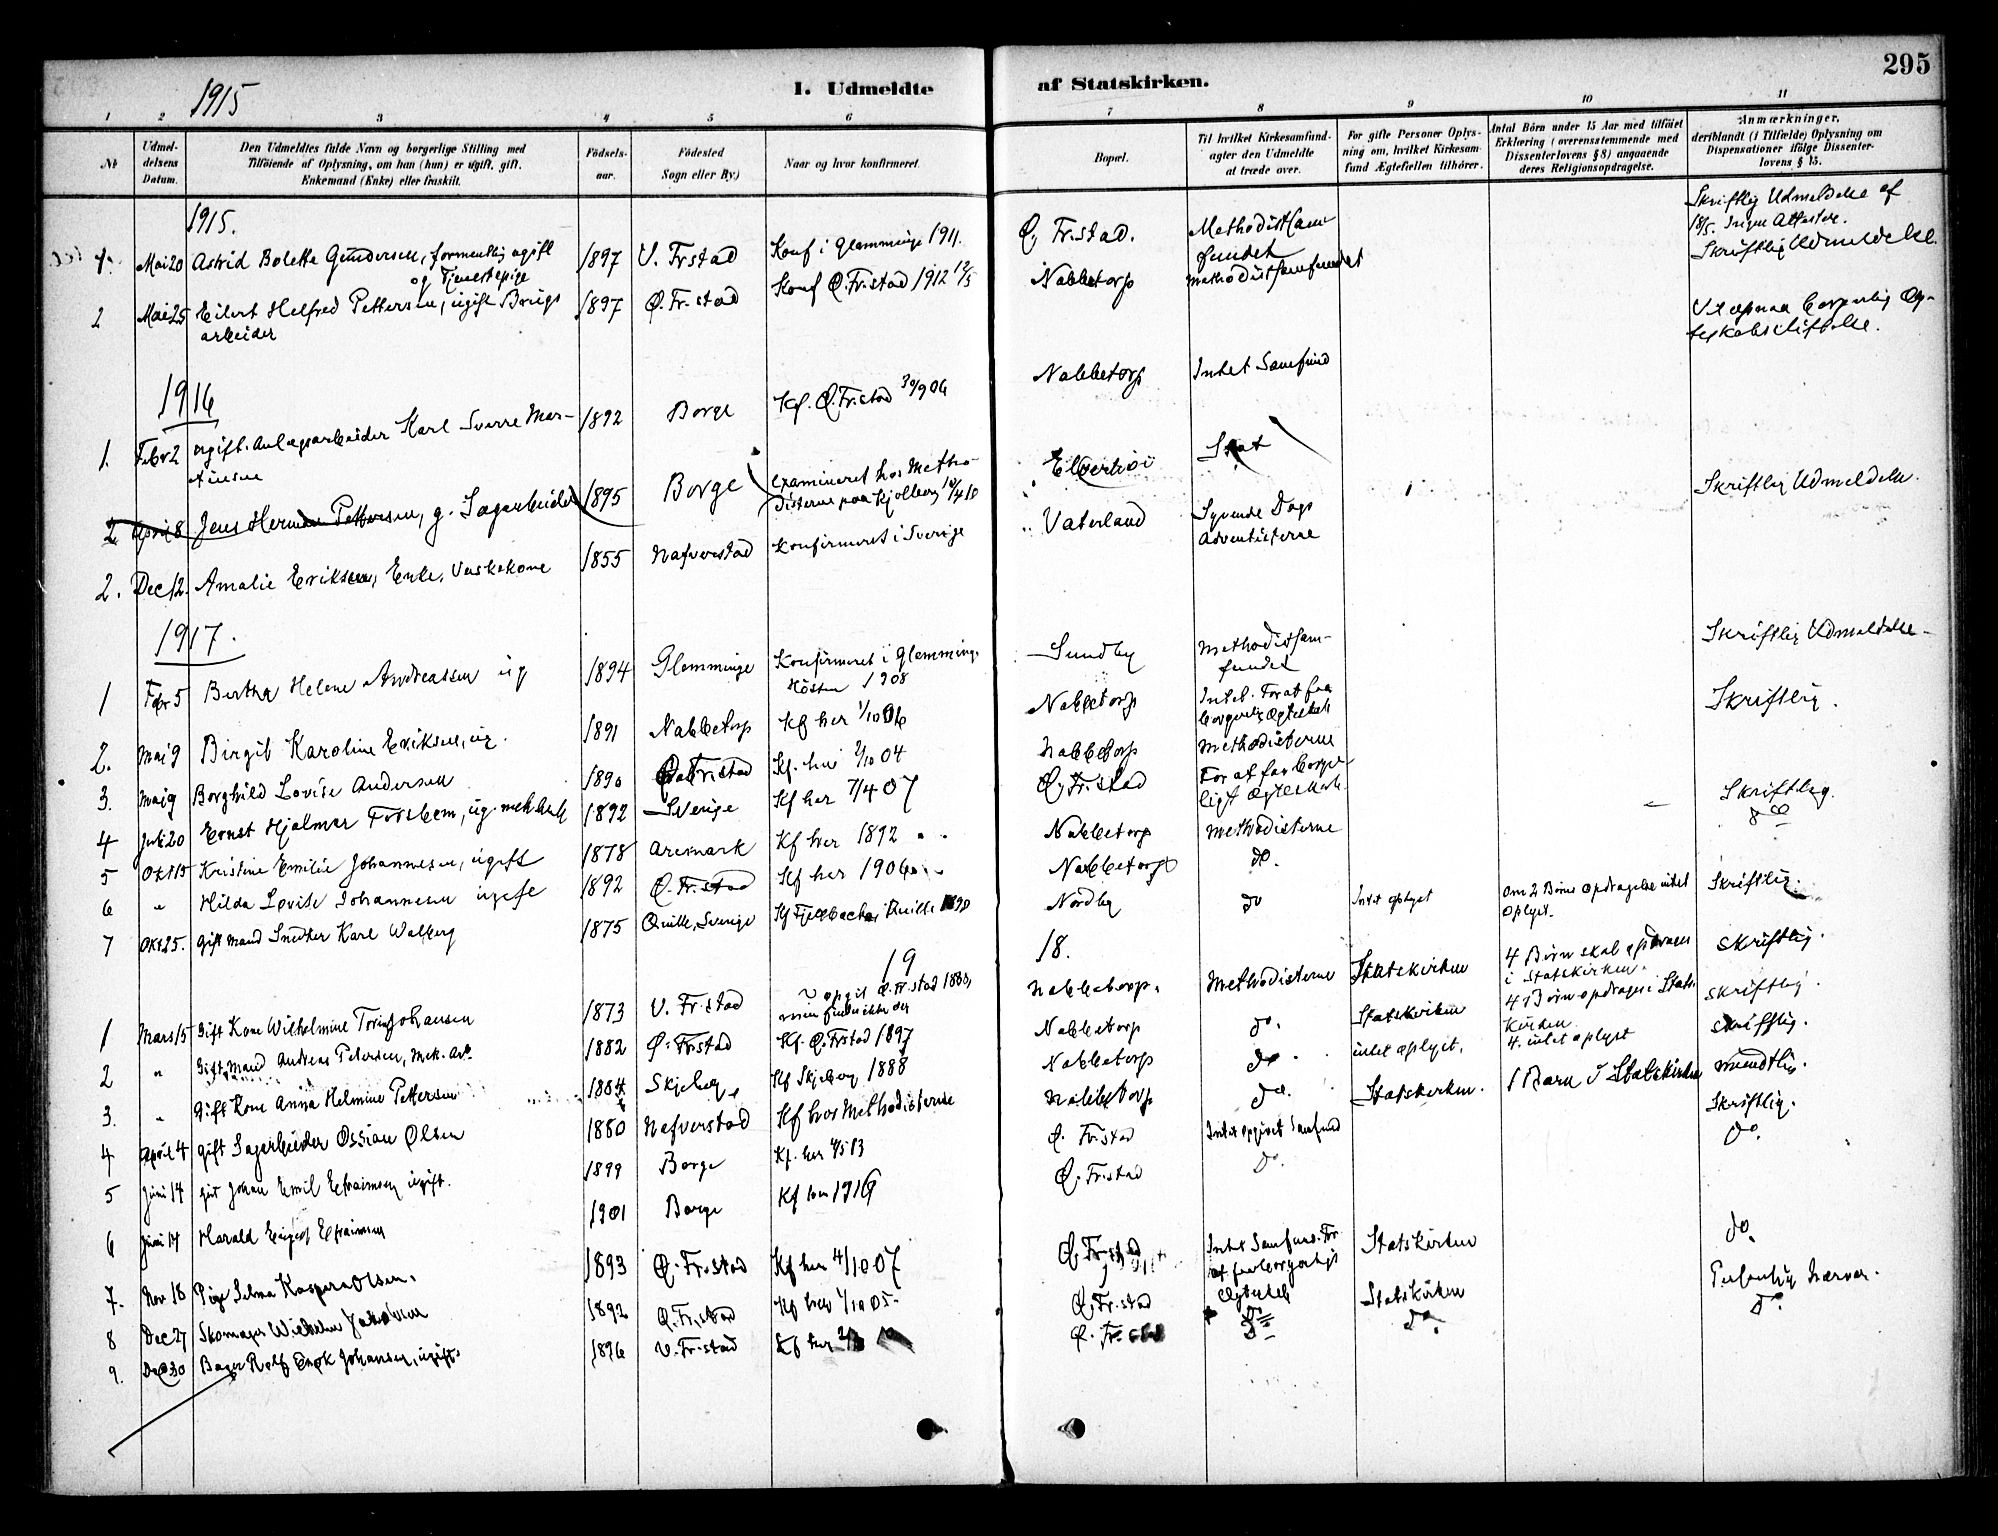 295
1915
1. Udmeldte af Statskirken.
1 2 3 4 5 6 7 8 9 10 11
No
Udmel-
delsens
Datum.
Den Udmeldtes fulde Navn og borgerlige Stilling med
Tilføiende af Oplysning, om han (hun) er ugift, gift,
Enkemand (Enke) eller fraskilt.
Födsels-
aar.
Födested
Sogn eller By.)
Naar og hvor konfirmeret.
Bopæl.
Til hvilket Kirkesamfund-
agter den Udmeldte
at træde over.
For gifte Personer Oplys-
ning om, hvilket Kirkesam-
fund Ægtefællen tilhörer.
Antal Börn under 15 Aar med tilföiet
Erklæring (overensstemmende med
Dissenterlovens § 8) angaaende
deres Religionsopdragelse.
Anmærkninger,
deriblandt (i Tilfælde) Oplysning om
Dispensationer ifölge Dissenter-
lovens § 15.
1915.
1 Mai 20 Astrid Bolette Gundersen, formentlig ugift 1897 V. Frstad Konf i Glemminge 1911. Ø. Fr.stad. Methodistsam- Skriftlig Udmeldelse af
og Tjenestepige fundet 18/5. Ingen Attester.
2 Mai 25 Eilert Helfred Pettersen, ugift Brugs 1897 Ø. Fr.stad Konf Ø.Fr.stad 1912 Nabbetorp Methodistsamfundet Skriftlig Udmeldelse.
arbeider
1916
1. Febr 2 ugift Anlægsarbeider Karl Sverre Mar- 1892 Borge Kf. Ø.Fr.stad 30/9 06 Nabbetorp Intet Samfund
tinsen
2 April 8 Jens Herman Pettersen, g. Sagarbeider 1895 Borge examineret hos Metho-
disterne paa Kjølberg Stat
2. Dec 12. Amalie Eriksen, Enke, Vaskekone 1855 Nafverstad Konfirmeret i Sverige Vaterland Syvende Dags Skriftlig Udmeldelse.
Adventisterne
1917.
1 Febr 5 Bertha Helene Andreassen ug 1894 Glemminge Konfirmeret i Glemminge Sundby Methodistsam- Skriftlig Udmeldelse
Høsten 1908 fundet
2. Mai 9 Birgit Karoline Eriksen, ug. 1891 Nabbetorp Kf her 1/10 06 Nabbetorp Intet. For at faa Skriftlig.
borgerlig Ægteskab
3. Mai 9 Borghild Lovise Andersen 1890 Kf. her 2/10 04 Nabbetorp Methodisterne
4 Juli 20 Ernst Hjalmar ug. mek. Arb 1892 Sverige Kf her 7/4 07 Ø. Fr.stad For at faa borger-
ligt Ægteskab.
5 Okt 15 Kristine Emilie Johannesen, ugift 1878 Aremark Kf her 1892 Nabbetorp Methodisterne Skriftlig.
6 " Hilda Lovise Johannesen ugift 1892 Ø. Fr.stad Kf her 1906 Nabbetorp do. do
7 Okt 25. gift mand Snedker Karl Walberg 1875 Quille, Sverige Kf Fjelbacka i Quille 1890 Nordby do Intet oplyst Om 2 Børns opdragelse intet Skriftlig.
oplyst.
19 18.
1 Mars 15 Gift Kone Wilhelmine Johansen 1873 V. Fr.stad Nabbetorp. Methodisterne Statskirken 4 Børn skal opdrages Skriftlig.
i Statskirken.
2 " Gift Mand Andreas Petersen, Mek. Arb. 1882 Ø. Fr.stad Kf. Ø. Frstad 1897 Nabbetorp do. Statskirken 4 Børn opdrages i Stats- Skriftlig.
kirken
3. " Gift Kone Anna Helmine Pettersen Skjeberg Kf Skjeberg 1888 Nabbetorp do. intet oplyst. 4. intet oplyst Skriftlig.
4 April 4 gift Sagarbeider Ossian Olsen 1880 Nafverstad Kf hos Methodisterne Nabbetorp do. Statskirken. 1 Barn i Statskirken mundtlig.
5 Juni 14 Johan Emil Efraimsen ugift. 1899 Borge Kf. her Ø. Fr.stad Intet opgivet Samfund Skriftlig.
6 Juni 14 Harald Efraimsen 1901 Borge Kf her 1916 Ø. Fr.stad do. do.
7. Nov 18 Pige Selma Kaspara Olsen. 1893 Ø. Fr.stad Kf her 4/10 07 Ø. Fr.stad Intet Samfund. For Statskirken do.
at faa borgerligt
Ægteskab
8 Dec 27 Skomager Wilhelm 1892 Ø. Fr.stad Kf her 1/10 05. Ø. Fr.stad do Statskirken
9. Dec 30 Bager Rolf Johansen, ugift 1896 V. Fr.stad Kf her Ø. Fr.stad do do. do